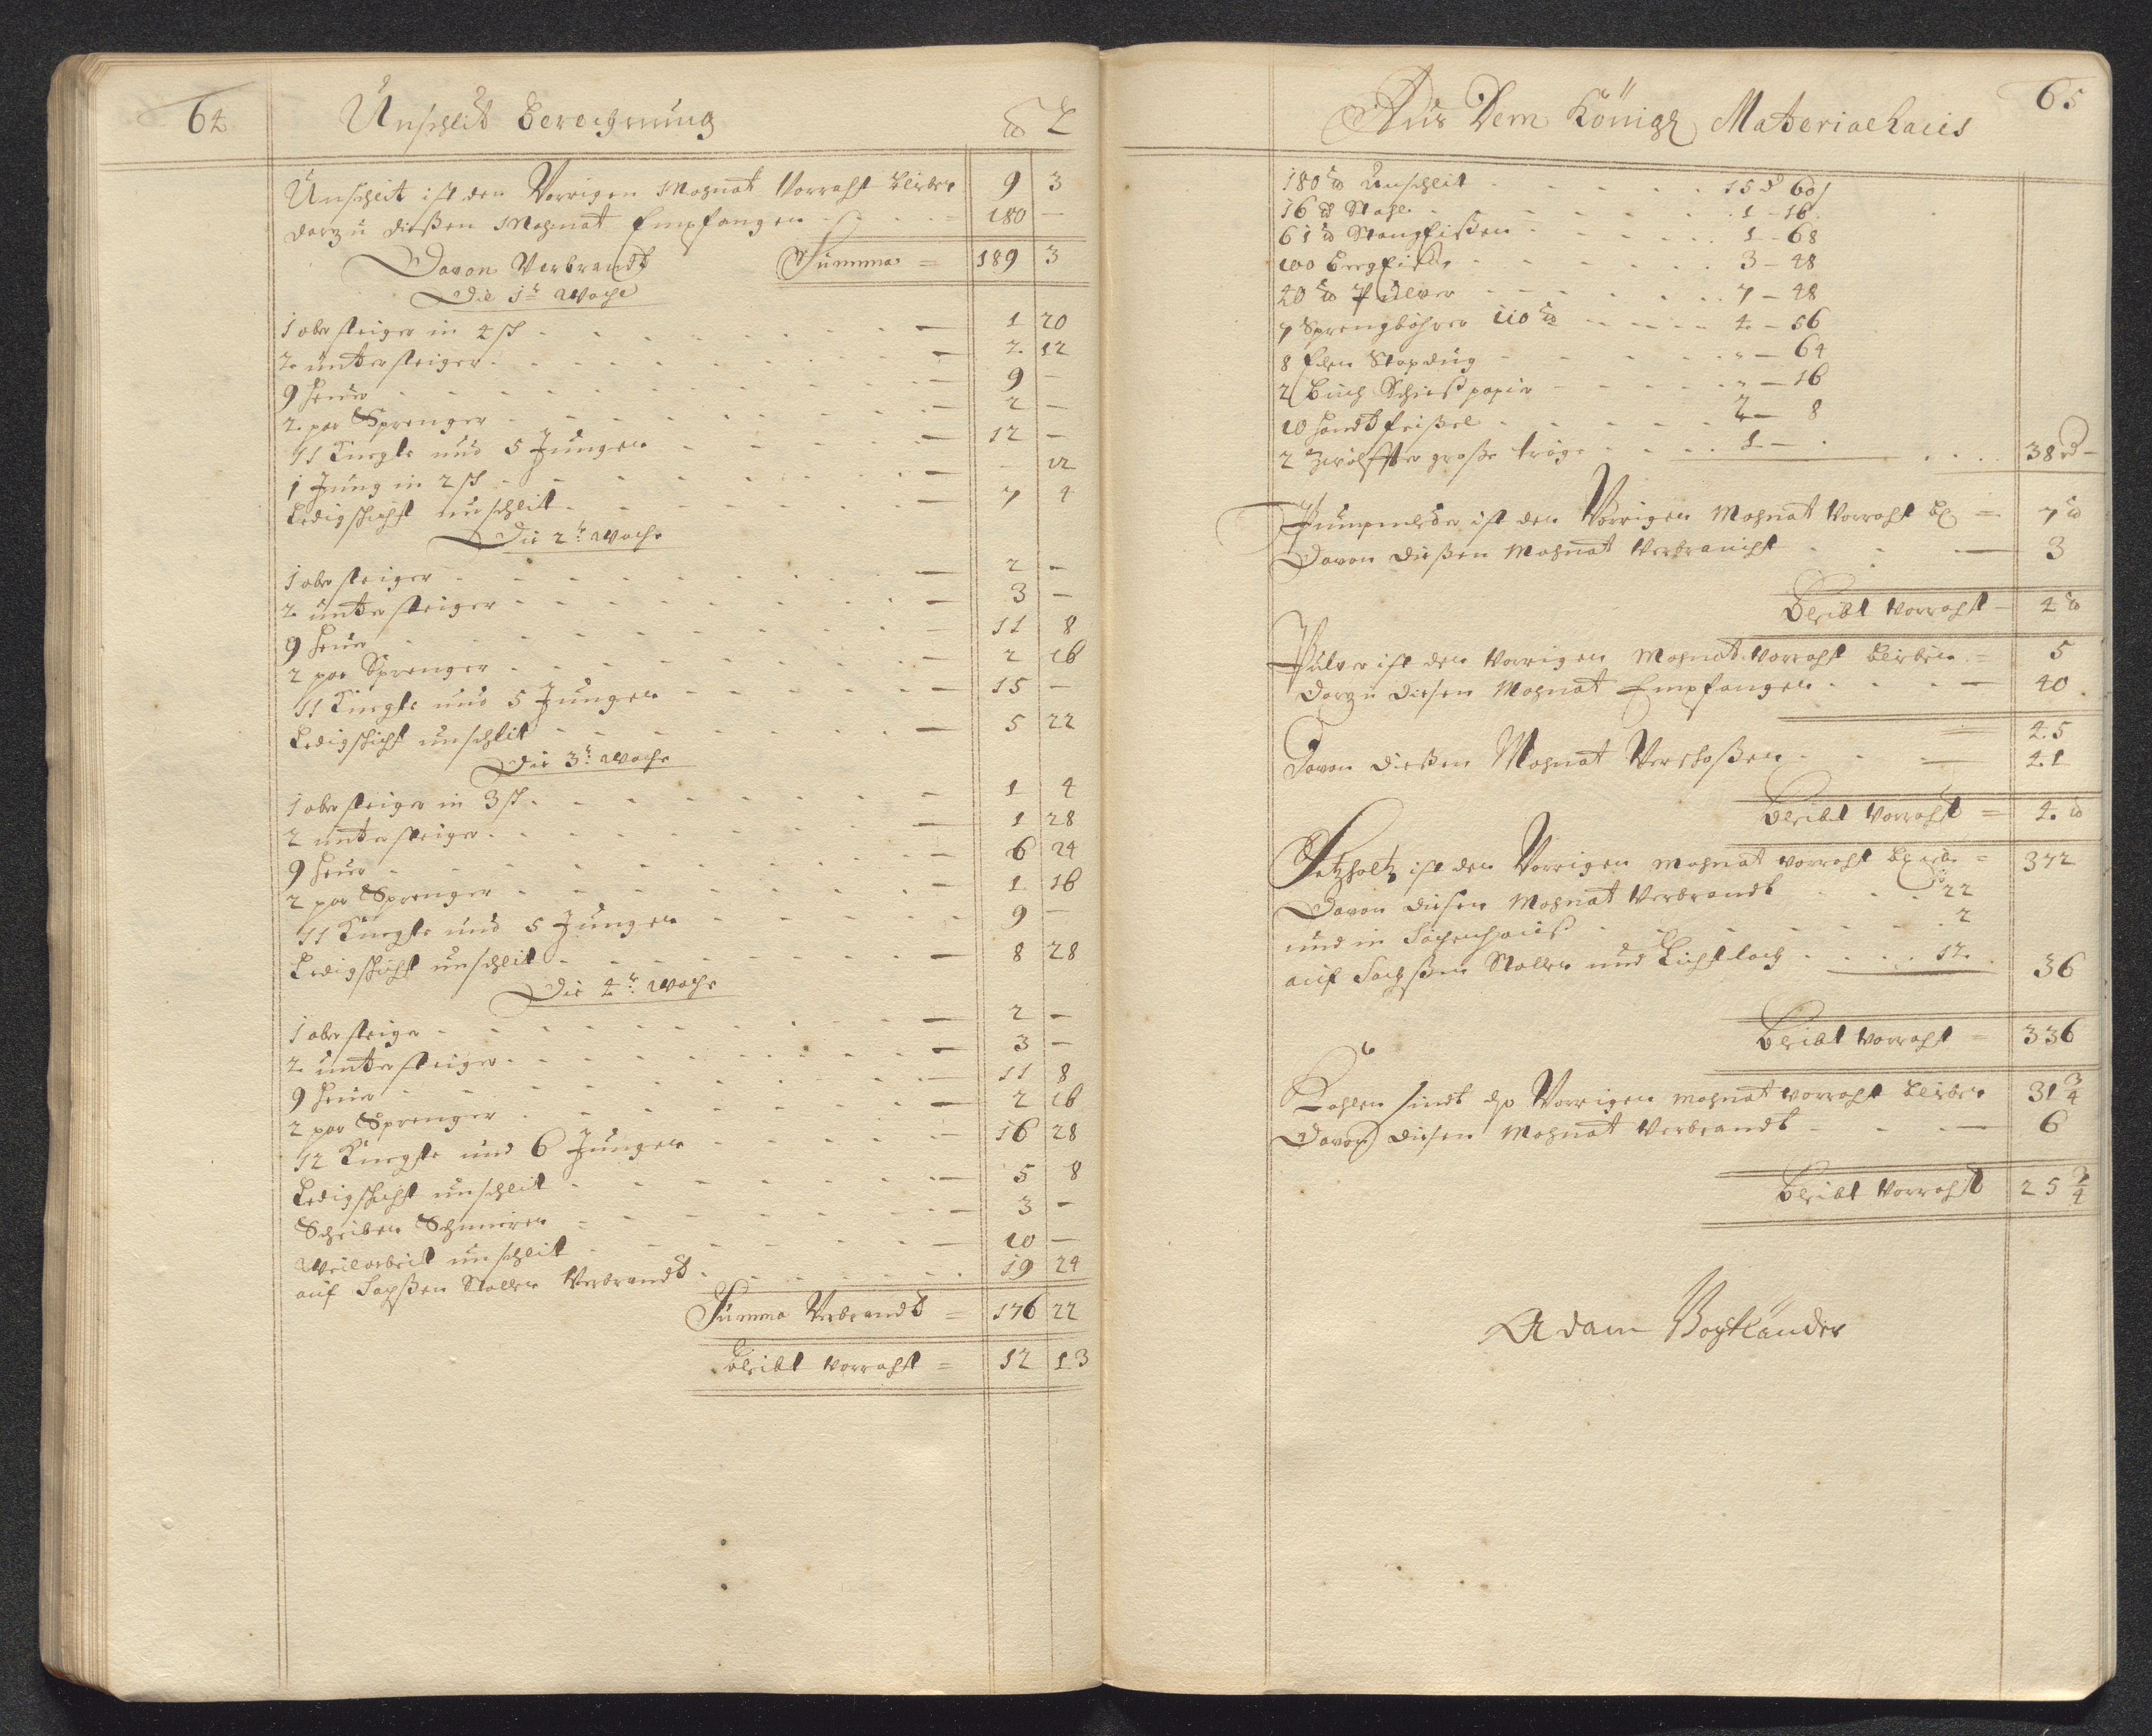 64
Unschlit Berechnung ℔ L
Unschleit ist den Vorrigen Mohnat Vorraht blieben 9 3
darzu dießen Mohnat Empfangen 180 —
Summa = 189 3
Davon Verbrandt
Die 1te Woche
1 obersteiger in 4 sch 1 20
2 untersteiger 2 12
9 heuer 9 —
2 par Sprenger 2 —
11 Knechte und 5 Jungen 12 —
1 Jung in 2 sch — 12
Ledigschicht unschleit 7 4
Die 2te Woche
1 obersteiger 2 —
2 untersteiger 3 —
9 heuer 11 8
2 par Sprenger 2 16
11 Knechte und 5 Jungen 15 —
Ledigschicht unschlit 5 22
Die 3te Woche
1 obersteiger in 3 sch 1 4
2 untersteiger 1 28
9 heuer 6 24
2 par Sprenger 1 16
11 Knechte und 5 Jungen 9 —
Ledigschicht unschleit 8 28
Die 4te Woche
1 obersteiger 2 —
2 untersteiger 3 —
9 heuer 11 8
2 par Sprenger 2 16
12 Knechte und 6 Jungen 16 28
Ledigschicht unschleit 5 8
Scheiben Schmieren 3 —
Weilarbeit unschleit 10 —
auf Sachßen Stollen Verbrandt 19 24
Summa Verbrandt = 176 22
bleibt Vorraht = 12 13
65
Aus Dem Königl Materialhaus
180 ℔ Unschleit 15 60
16 ℔ Stahl 1 — 16
61 ℔ Stangeißen 1 — 68
100 Bergeißen 3 — 48
40 ℔ Pulver 7 — 48
7 Sprengbohrer 110 ℔ 4 — 56
8 Elen Stopdug „ — 64
2 Buch Schießpapier „ — 16
10 handtfeißel 2 — 8
2 Zwölffter große tröge 1 — 38 —
Pumpenleder ist den Vorrigen Mohnat Vorraht bl = 7 ℔
Davon dießen Mohnat Verbraucht 3
Bleibt Vorraht 4 ℔
Pulver ist den Vorrigen Mohnat Vorraht blieben = 5
darzu diesen Mohnat Empfangen 40
45
Davon dießen Mohnat Verschoßen 41
Bleibt Vorraht = 4 ℔
Setzholtz ist den Vorrigen Mohnat Vorraht blieben = 372
Davon diesen Mohnat Verbrandt 22
und in Zächenhaus 2
auf Sachßen Stollen und Lichtloch 12 36
Bleibt Vorraht = 336
Kohlen sindt des Vorrigen mohnat Vorraht blieben 31 3/4
Davon diesen Mohnat Verbrandt 6
Bleibt Vorraht 25 3/4
Adam Vogtländer